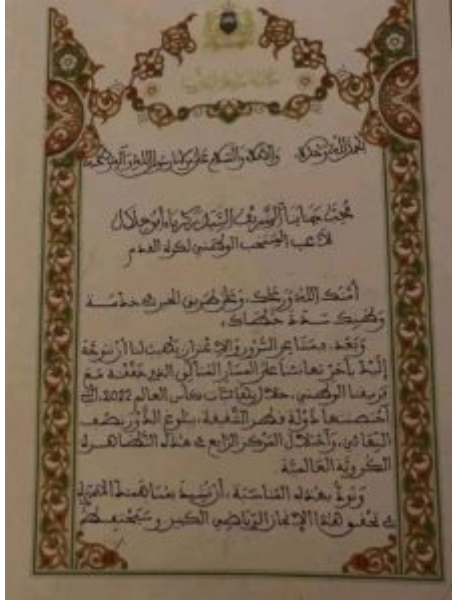 الحمد لله وحده والصلاة والسلام على مولانا رسول الله وآله وصحبه
محب جنابنا الشريف السيد زكرياء أبو خلال
لاعب المنتخب الوطني لكرة القدم
أمنك الله ورعاك، وعلى طريق الخير في خدمة
وطنك سدد خطاك،
وبعد، فبمشاعر السرور والاعتزاز يطيب لنا أن نتوجه
إليك بأحر تهانئنا على المسار المثالي الذي حققته مع
فريقنا الوطني، خلال نهائيات كأس العالم 2022، التي
احتضنتها دولة قطر الشقيقة، ببلوغ الدور نصف
النهائي، واحتلال المركز الرابع في هذه التظاهرة
الكروية العالمية
ونود بهذه المناسبة، أن نشيد بمساهمتك
في تحقيق هذا الإنجاز الرياضي الكبير